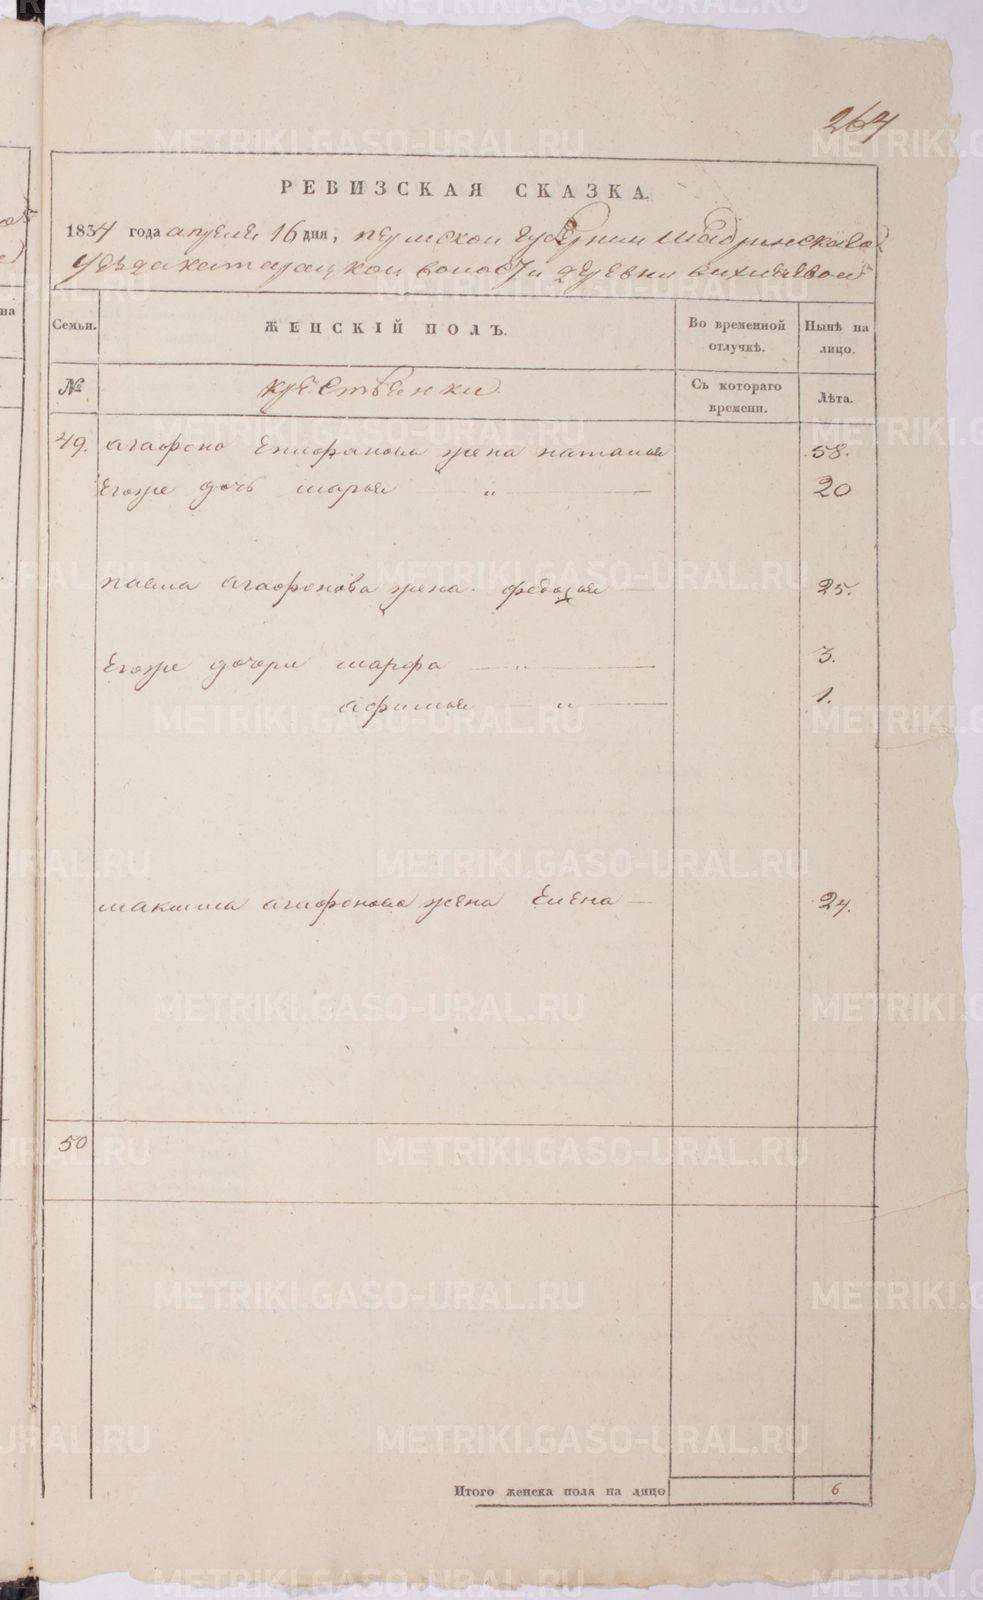 264
РЕВИЗСКАЯ СКАЗКА.
1834 года апреля 16 дня, пермской губернии Шадринскаго
уезда катарацкой волости деревни
Семьи.
ЖЕНСКІЙ ПОЛЪ.
Во временной отлучкѣ.
Нынѣ на лицо.
№
крестьянки
Съ котораго времени.
Лѣта.
49. агафона Епифанова жена наталья 58.
Егоже дочь марья „ 20
павла агафонова жена федосья 25.
Егоже дочери марфа „ 3.
афимья „ 1.
максима агафонова жена Елена 24.
50
Итого женска пола на лицо 6
METRIKI.GASO-URAL.RU